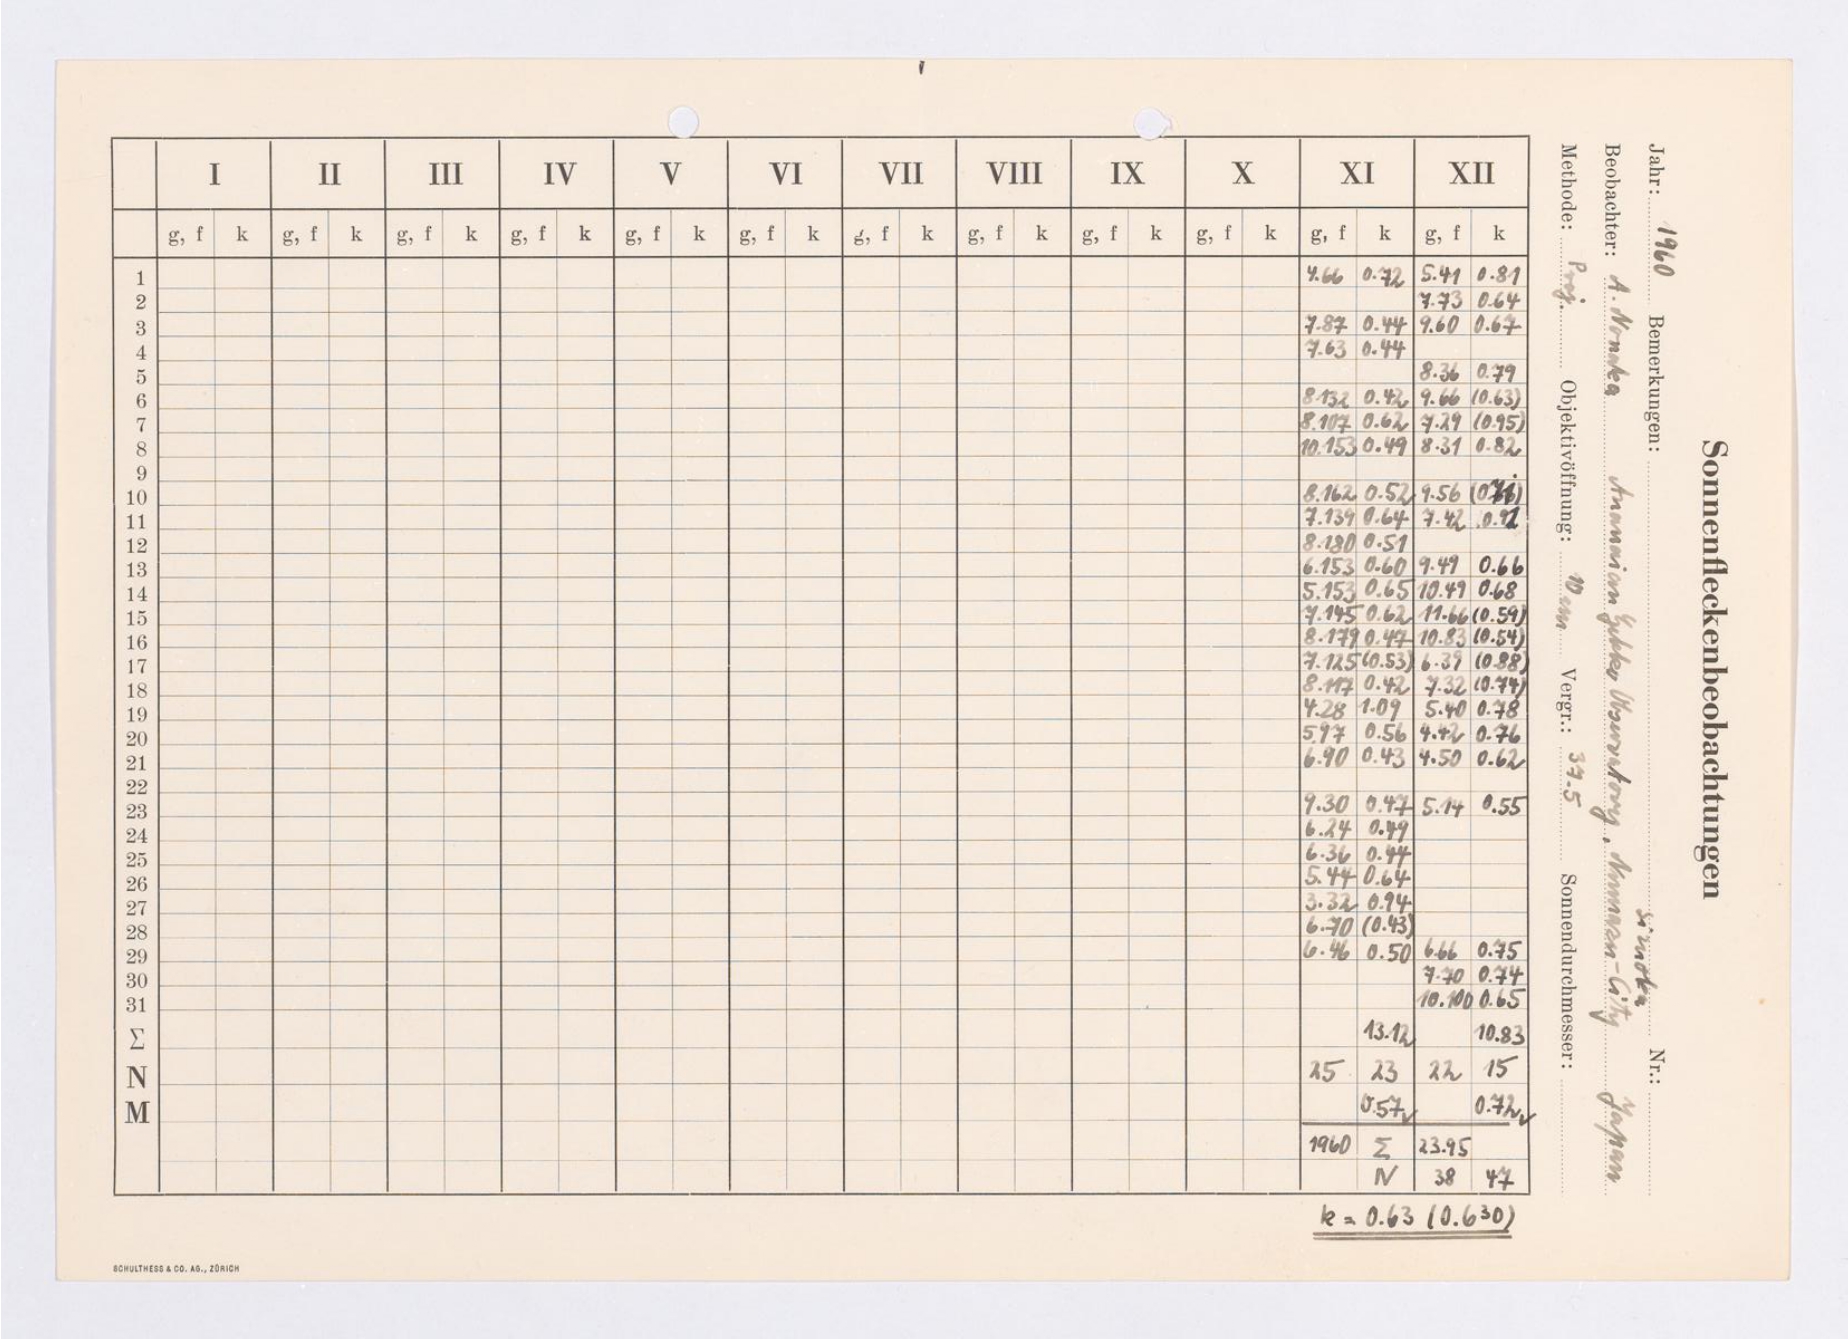 Sonnenfleckenbeobachtungen
Jahr: 1960 Bemerkungen: Nr.:
Beobachter: A. Observatory, Japan
Methode: Proj. Objektivöffnung: 10 Vergr.: 37.5 Sonnendurchmesser:
I II III IV V VI VII VIII IX X XI XII
g, f k g, f k g, f k g, f k g, f k g, f k g, f k g, f k g, f k g, f k g, f k g, f k
1 4.66 0.72 5.41 0.81
2 7.73 0.64
3 7.87 0.44 9.60 0.67
4 7.63 0.44
5 8.36 0.79
6 8.132 0.42 9.66 (0.63)
7 8.107 0.62 7.29 (0.95)
8 10.153 0.49 8.31 0.82
9
10 8.162 0.52 9.56
11 7.139 0.64 7.42 0.92
12 8.180 0.51
13 6.153 0.60 9.49 0.66
14 5.153 0.65 10.49 0.68
15 7.145 0.62 11.66 (0.59)
16 8.179 0.47 10.83 (0.54)
17 7.125 (0.53) 6.39 (0.88)
18 8.117 0.42 7.32 (0.74)
19 4.28 1.09 5.40 0.78
20 5.97 0.56 4.42 0.76
21 6.90 0.43 4.50 0.62
22
23 9.30 0.47 5.14 0.55
24 6.24 0.49
25 6.36 0.44
26 5.44 0.64
27 3.32 0.94
28 6.70 (0.43)
29 6.46 0.50 6.66 0.75
30 7.70 0.74
31 10.100 0.65
Σ 13.12 10.83
N 25 23 22 15
M 0.57 0.72
1960 Σ 23.95
N 38 47
k = 0.63 (0.630)
SCHULTHESS & CO. AG., ZÜRICH